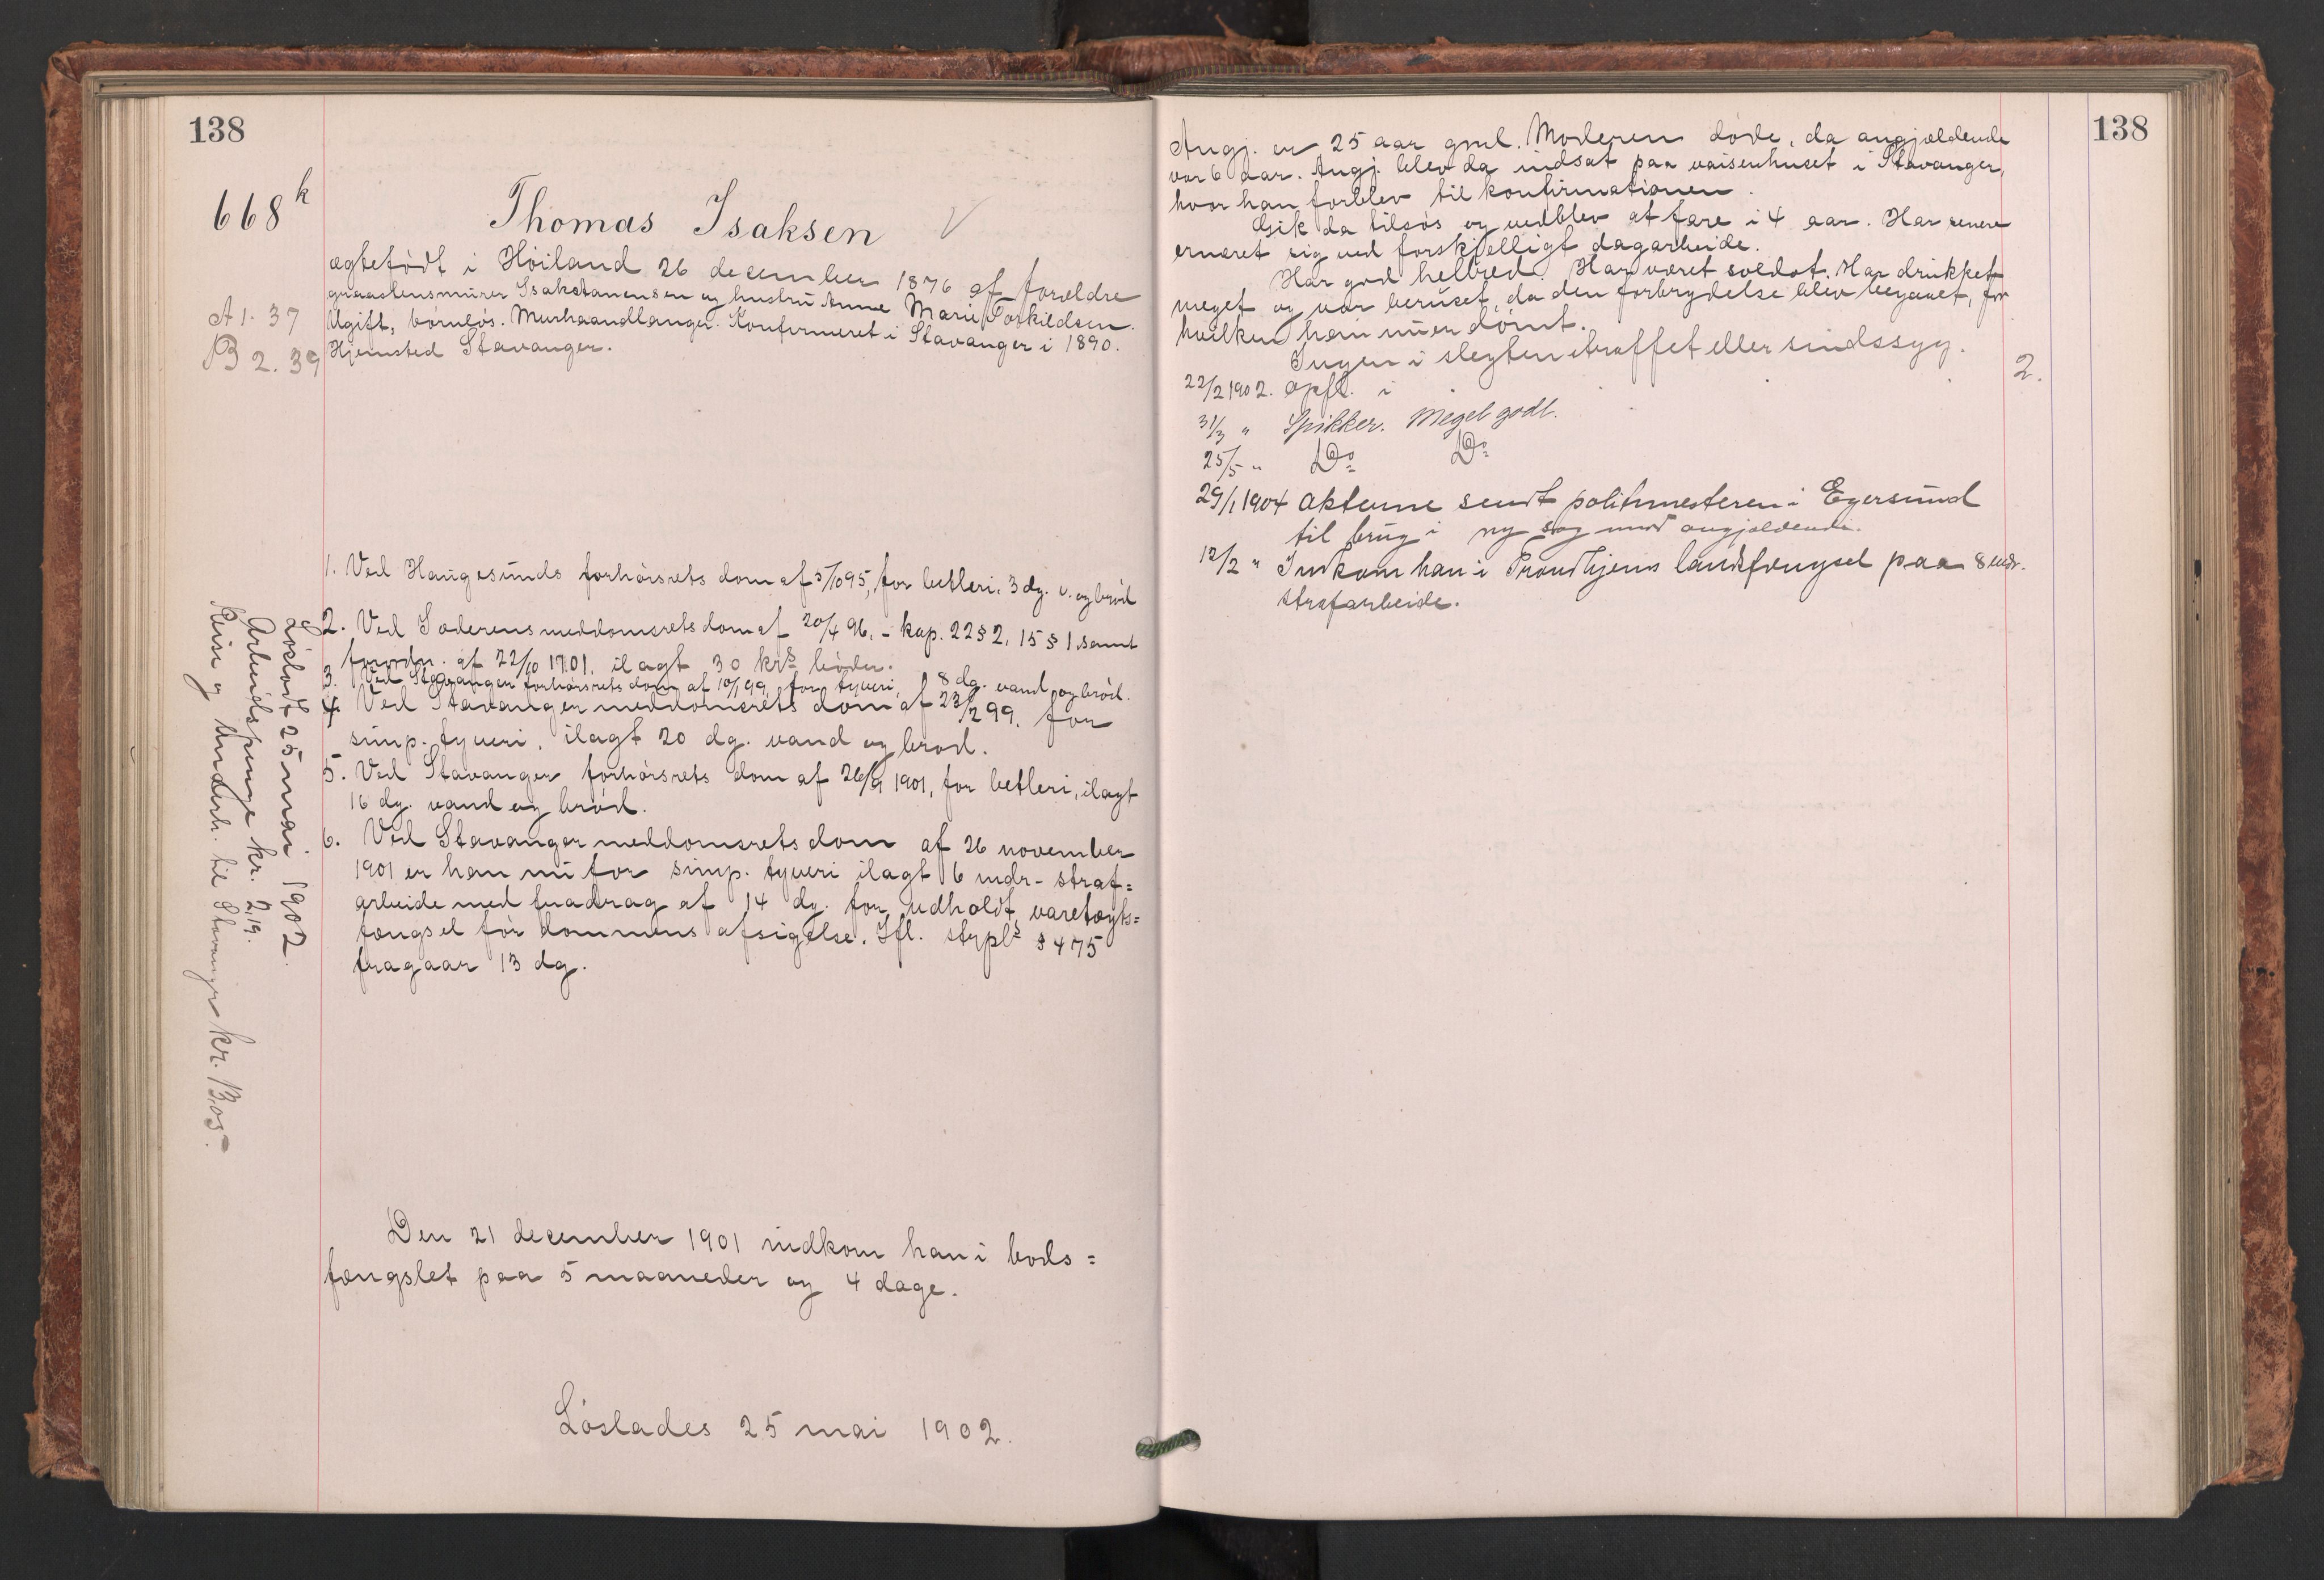 138
668k
Thomas Isaksen V
ægtefødt i Høiland 26 december 1876 af forældre
graastensmurer Isak Hanensen og hustru Anne Marie Torkildsen.
Ugift, børnløs. Murhaandlanger. Konfirmeret i Stavanger i 1890.
Hjemsted Stavanger.
A 1. 37
B 2. 39
1. Ved Haugesunds forhørsrets dom af 5/10 95, for betleri. 3 dg. v. og brød
2. Ved Jæderens meddomsrets dom af 20/4 96. - kap. 22 § 2, 15 § 1 samt
forordn. af 22/10 1701, ilagt 30 krs bøder.
3. Ved Stavanger forhørsrets dom af 10/1 99, for tyveri, 8 dg. vand og brød.
4. Ved Stavanger meddomsrets dom af 23/2 99. for
simp. tyveri, ilagt 20 dg. vand og brød.
5. Ved Stavanger forhørsrets dom af 26/9 1901, for betleri, ilagt
16 dg. vand og brød.
6. Ved Stavanger meddomsrets dom af 26 november
1901 er han nu for simp. tyveri ilagt 6 mdr. straf=
arbeide med fradrag af 14 dg. for udholdt varetægts=
fængsel før dommens afsigelse. Ifl. strpls § 475
fragaar 13 dg.
Løsladt 25 mai 1902.
Arbeidspenge kr. 2,19.
Reise og Underh. til Stavanger kr. 13,05.
Den 21 december 1901 indkom han i bods=
fængslet paa 5 maaneder og 4 dage.
Løslades 25 mai 1902.
138
Angj. er 25 aar gml. Moderen døde, da angjældende
var 6 aar. Angj. blev da indsat paa vaisenhuset i Stavanger,
hvor han forblev til konfirmationen.
Gik da tilsøs og vedblev at fare i 4 aar. Har senere
ernæret sig ved forskjelligt dagarbeide.
Har god helbred. Har været soldat. Har drukket
meget og var beruset, da den forbrydelse blev begaaet, for
hvilken han nu er dømt.
Ingen i slegten straffet eller sindssyg.
2.
22/2 1902. Opfl. i
31/3 " Spikker. Meget godt.
25/5 " Do Do
29/1 1904 Akterne sendt politimesteren i Egersund
til brug i ny sag mod angjældende.
12/2 " Indkom han i Trondhjems landsfængsel paa 8 mdr.
strafarbeide.